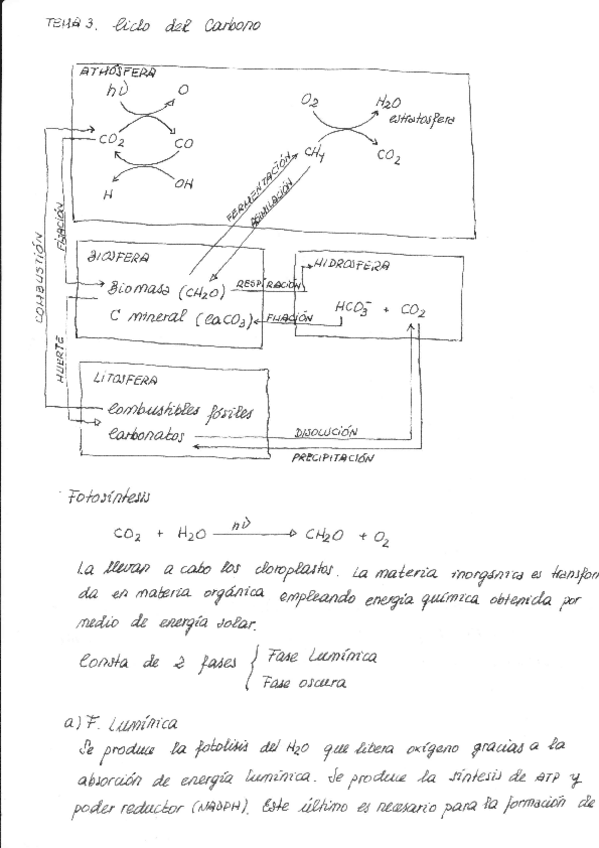 TEMA 3. Ciclo del Carbono
ATMÓSFERA
hν
O
CO2
CO
H
OH
O2
H2O
estratosfera
CH4
CO2
FERMENTACIÓN
ASIMILACIÓN
COMBUSTIÓN
FIJACIÓN
MUERTE
BIOSFERA
Biomasa (CH2O)
RESPIRACIÓN
C mineral (CaCO3)
FIJACIÓN
HIDROSFERA
HCO3- + CO2
LITOSFERA
Combustibles fósiles
Carbonatos
DISOLUCIÓN
PRECIPITACIÓN
Fotosíntesis
CO2 + H2O hν → CH2O + O2
La llevan a cabo los cloroplastos. La materia inorgánica es transfor
da en materia orgánica empleando energía química obtenida por
medio de energía solar.
Consta de 2 fases { Fase Lumínica
Fase oscura
a) F. Lumínica
Se produce la fotolisis del H2O que libera oxígeno gracias a la
absorción de energía lumínica. Se produce la síntesis de ATP y
poder reductor (NADPH). Este último es necesario para la formación de